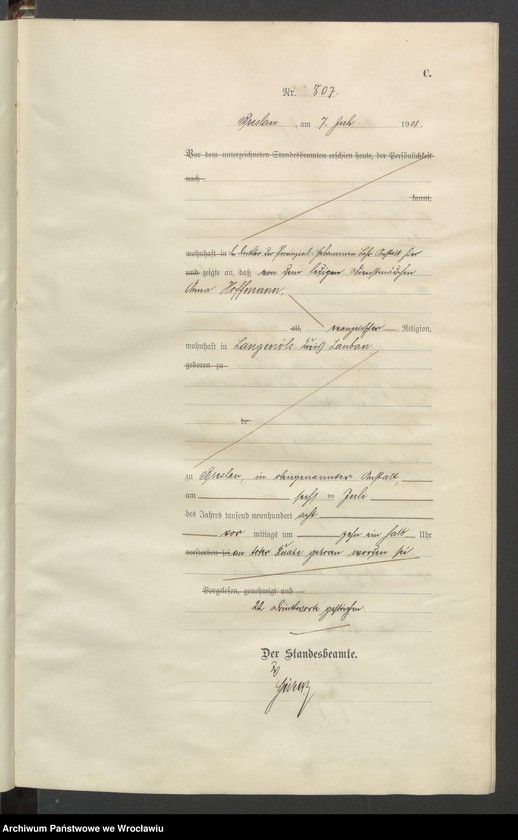 C.
Nr. 807.
Breslau, am 7. Juli 1908.
Vor dem unterzeichneten Standesbeamten erschien heute, der Persönlichkeit
nach
kannt,
wohnhaft in Direktor der Provinzial-Hebammen Lehr-Anstalt hier
und zeigte an, daß von der ledigen Dienstmädchen
Anna Hoffmann,
alt, evangelischer Religion,
wohnhaft in Langenöls Kreis Lauban
geboren zu
de
zu Breslau, in obengenannter Anstalt,
am sechs ten Juli
des Jahres tausend neunhundert acht
vor mittags um zehn ein halb Uhr
verstorben sei ein toter Knabe geboren worden sei.
Vorgelesen, genehmigt und
22 Druckworte gestrichen.
Der Standesbeamte.
Archiwum Państwowe we Wrocławiu